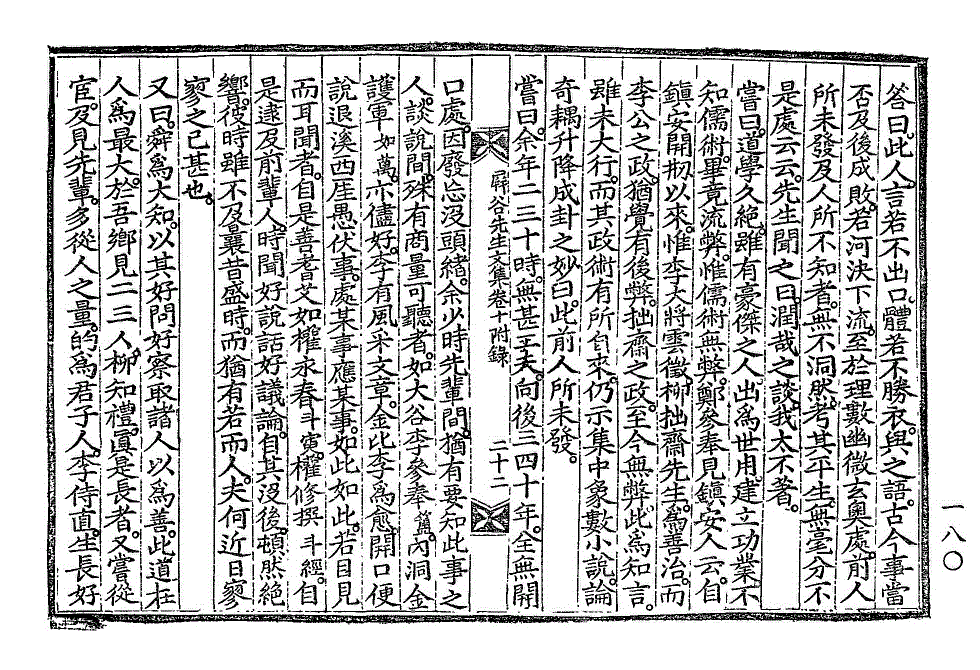 答曰。此人言若不出口。體若不勝衣。與之語。古今事當
否及後成敗。若河決下流。至於理數幽微玄奧處。前人
所未發及人所不知者。無不洞然。考其平生。無毫分不
是處云云。先生聞之曰。潤哉之談。我太不著。
嘗曰。道學久絶。雖有豪傑之人。出爲世用。建立功業。不
知儒術。畢竟流弊。惟儒術無弊。鄭參奉見鎭安人云。自
鎭安開刱以來。惟李大將雲徵,柳拙齋先生。爲善治。而
李公之政。猶覺有後弊。拙齋之政。至今無弊。此爲知言。
雖未大行。而其政術有所自來。仍示集中象數小說。論
奇耦升降成卦之妙曰。此前人所未發。
嘗曰。余年二三十時。無甚工夫。向後三四十年。全無開
屛谷先生文集卷十附錄 二十二
口處。因發忘沒頭緖。余少時先輩間。猶有要知此事之
人。談說間。殊有商量可聽者。如大谷李參奉簠。內洞金
護軍如萬。亦儘好。李有風采文章。金比李爲愈。開口便
說退溪西厓愚伏事。處某事應某事。如此如此。若目見
而耳聞者。自是善耆艾如權永春斗寅。權修撰斗經。自
是逮及前輩人。時聞好說話好議論。自其沒後。頓然絶
響。彼時雖不及曩昔盛時。而猶有若而人。夫何近日寥
寥之已甚也。
又曰。舜爲大知。以其好問好察取諸人以爲善。此道在
人爲最大。於吾鄕見二三人。柳知禮。眞是長者。又嘗從
宦。及見先輩。多從人之量。的爲君子人。李侍直。生長好
一八〇